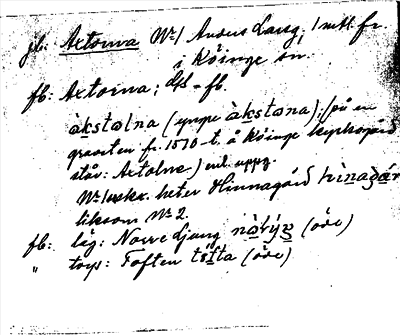 jb: Axtorna No 1 Anders Larsg; 1 mtl fr
i Köinge sn.
fb: Axtorna; dfs = fb.
àkstolna (yngre àkstona); (på en
gravsten fr. 1870-t. å Köinge kyrkogård
står: Axtolna) enl. uppg.
No 1 uskr. heter Hinnagård hìnagår
liksom No 2.
fb: läg: Norre Ljung (öde)
" torp: Toften tòfta (öde)